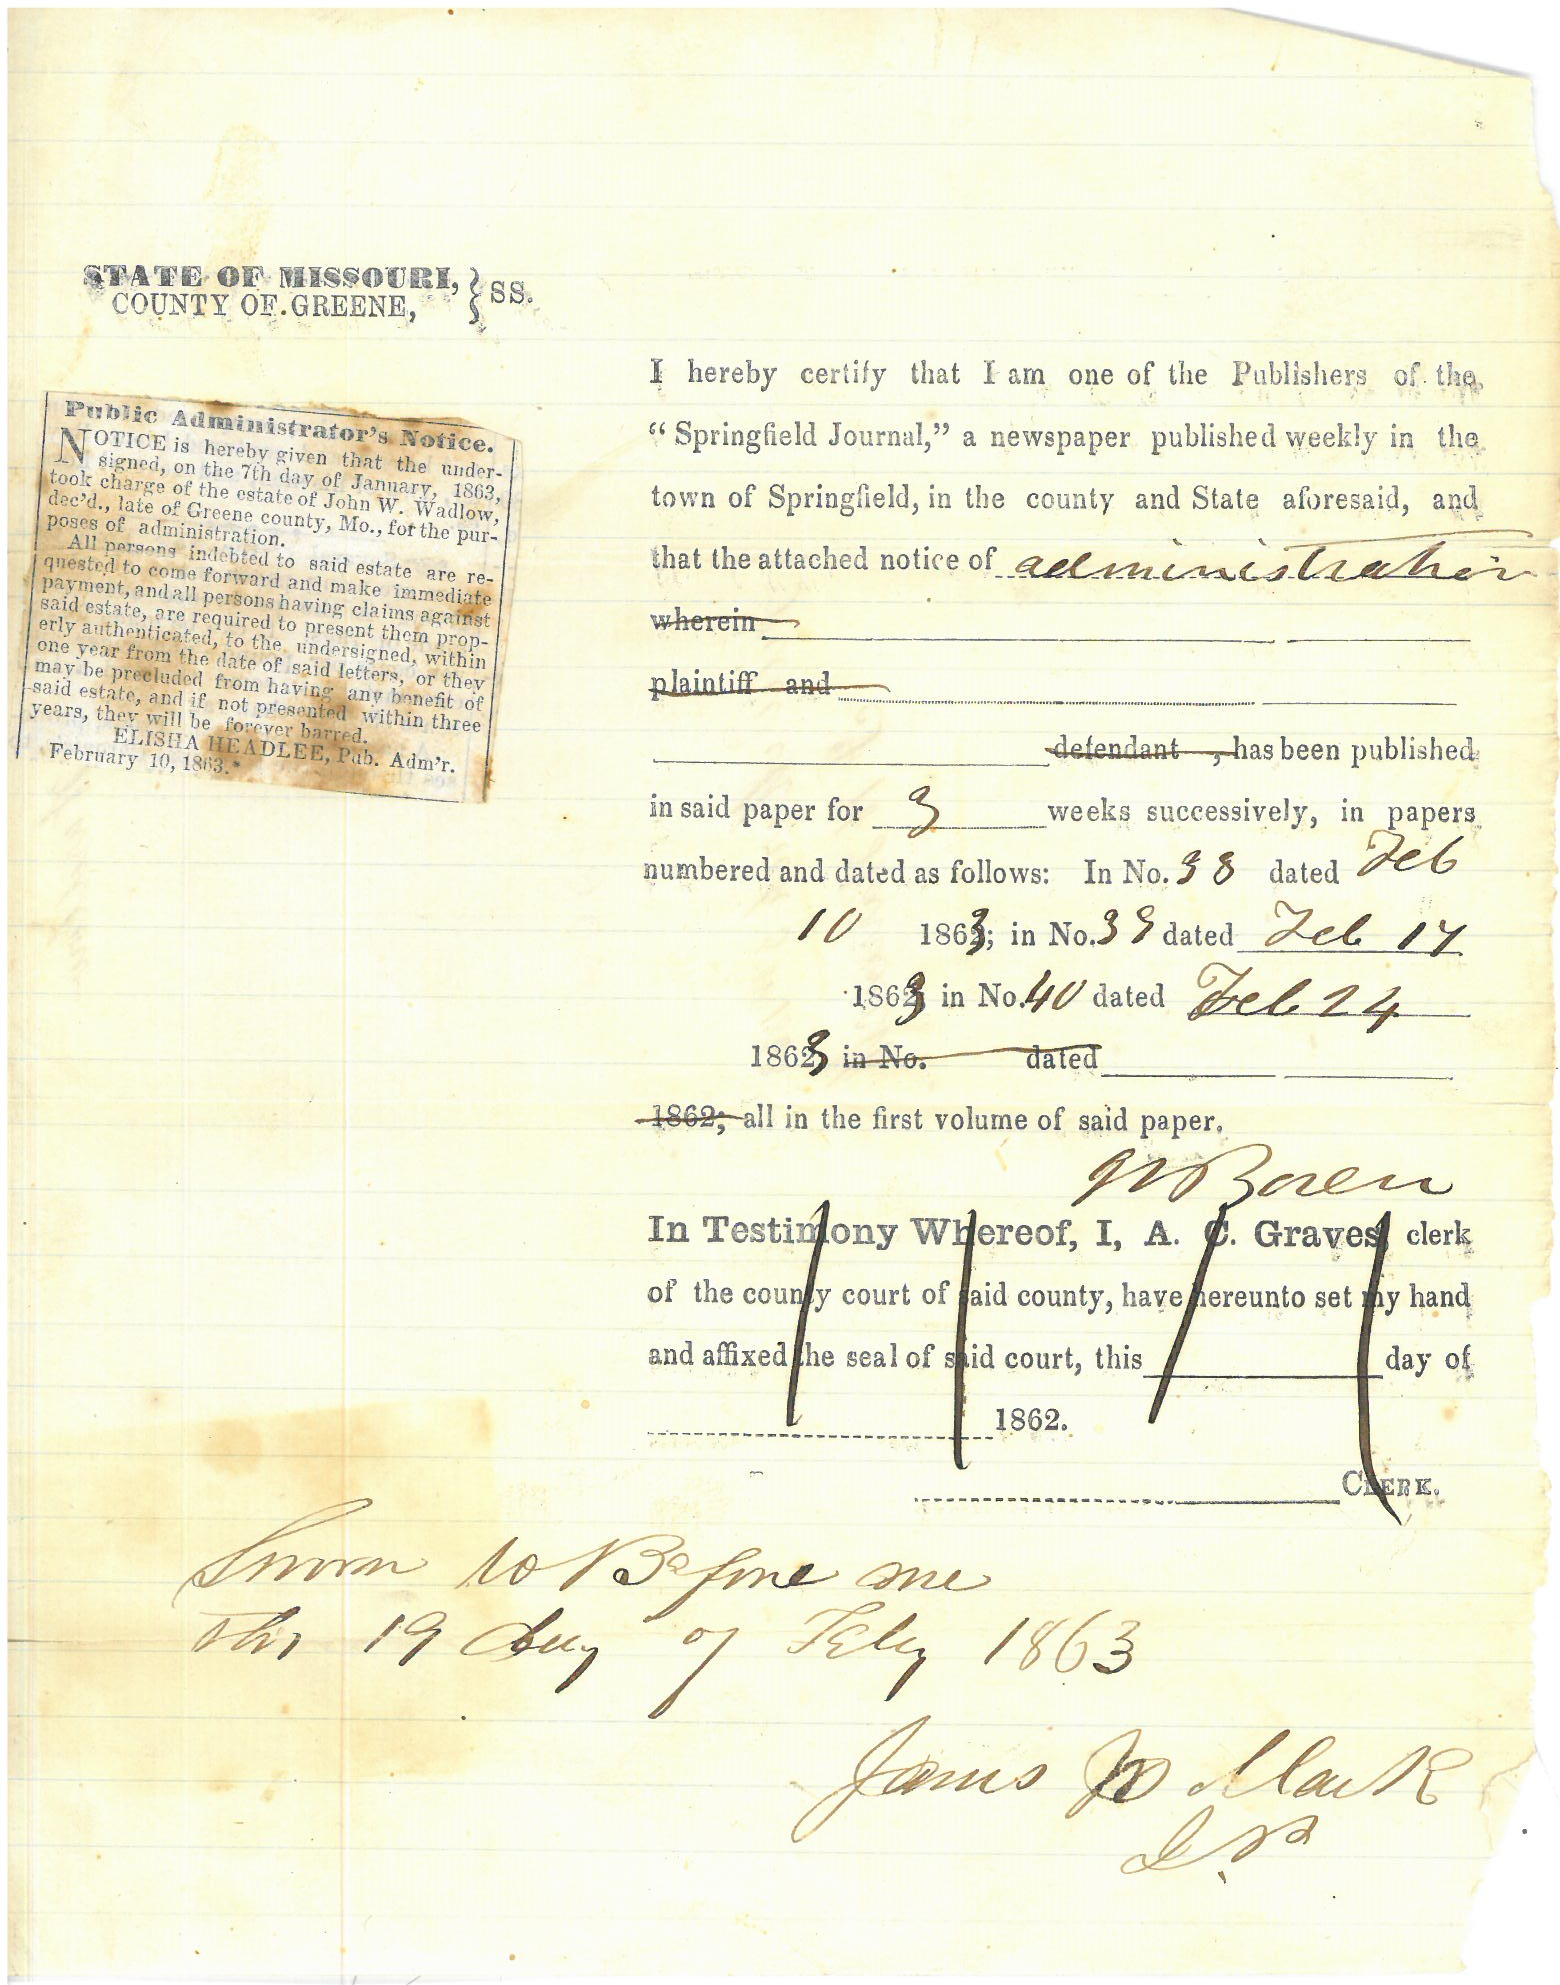 STATE OF MISSOURI, } SS.
COUNTY OF GREENE,
Public Administrator's Notice.
NOTICE is hereby given that the under-
signed, on the 7th day of January, 1863,
took charge of the estate of John W. Wadlow,
dec'd., late of Greene county, Mo., for the pur-
poses of administration.
All persons indebted to said estate are re-
quested to come forward and make immediate
payment, and all persons having claims against
said estate, are required to present them prop-
erly authenticated, to the undersigned, within
one year from the date of said letters, or they
may be precluded from having any benefit of
said estate, and if not presented within three
years, they will be forever barred.
ELISHA HEADLEE, Pub. Adm'r.
February 10, 1863.*
I hereby certify that I am one of the Publishers of the
“Springfield Journal,” a newspaper published weekly in the
town of Springfield, in the county and State aforesaid, and
that the attached notice of administration
wherein
plaintiff and
defendant , has been published
in said paper for 3 weeks successively, in papers
numbered and dated as follows: In No. 38 dated Feb
10 1863; in No. 39 dated Feb 17
1863 in No. 40 dated Feb 24
1863 in No. dated
1862; all in the first volume of said paper.
Boren
In Testimony Whereof, I, A. C. Graves, clerk
of the county court of said county, have hereunto set my hand
and affixed the seal of said court, this day of
1862.
CLERK.
Sworn to Before me
this 19 day of Feby 1863
James
J.P.